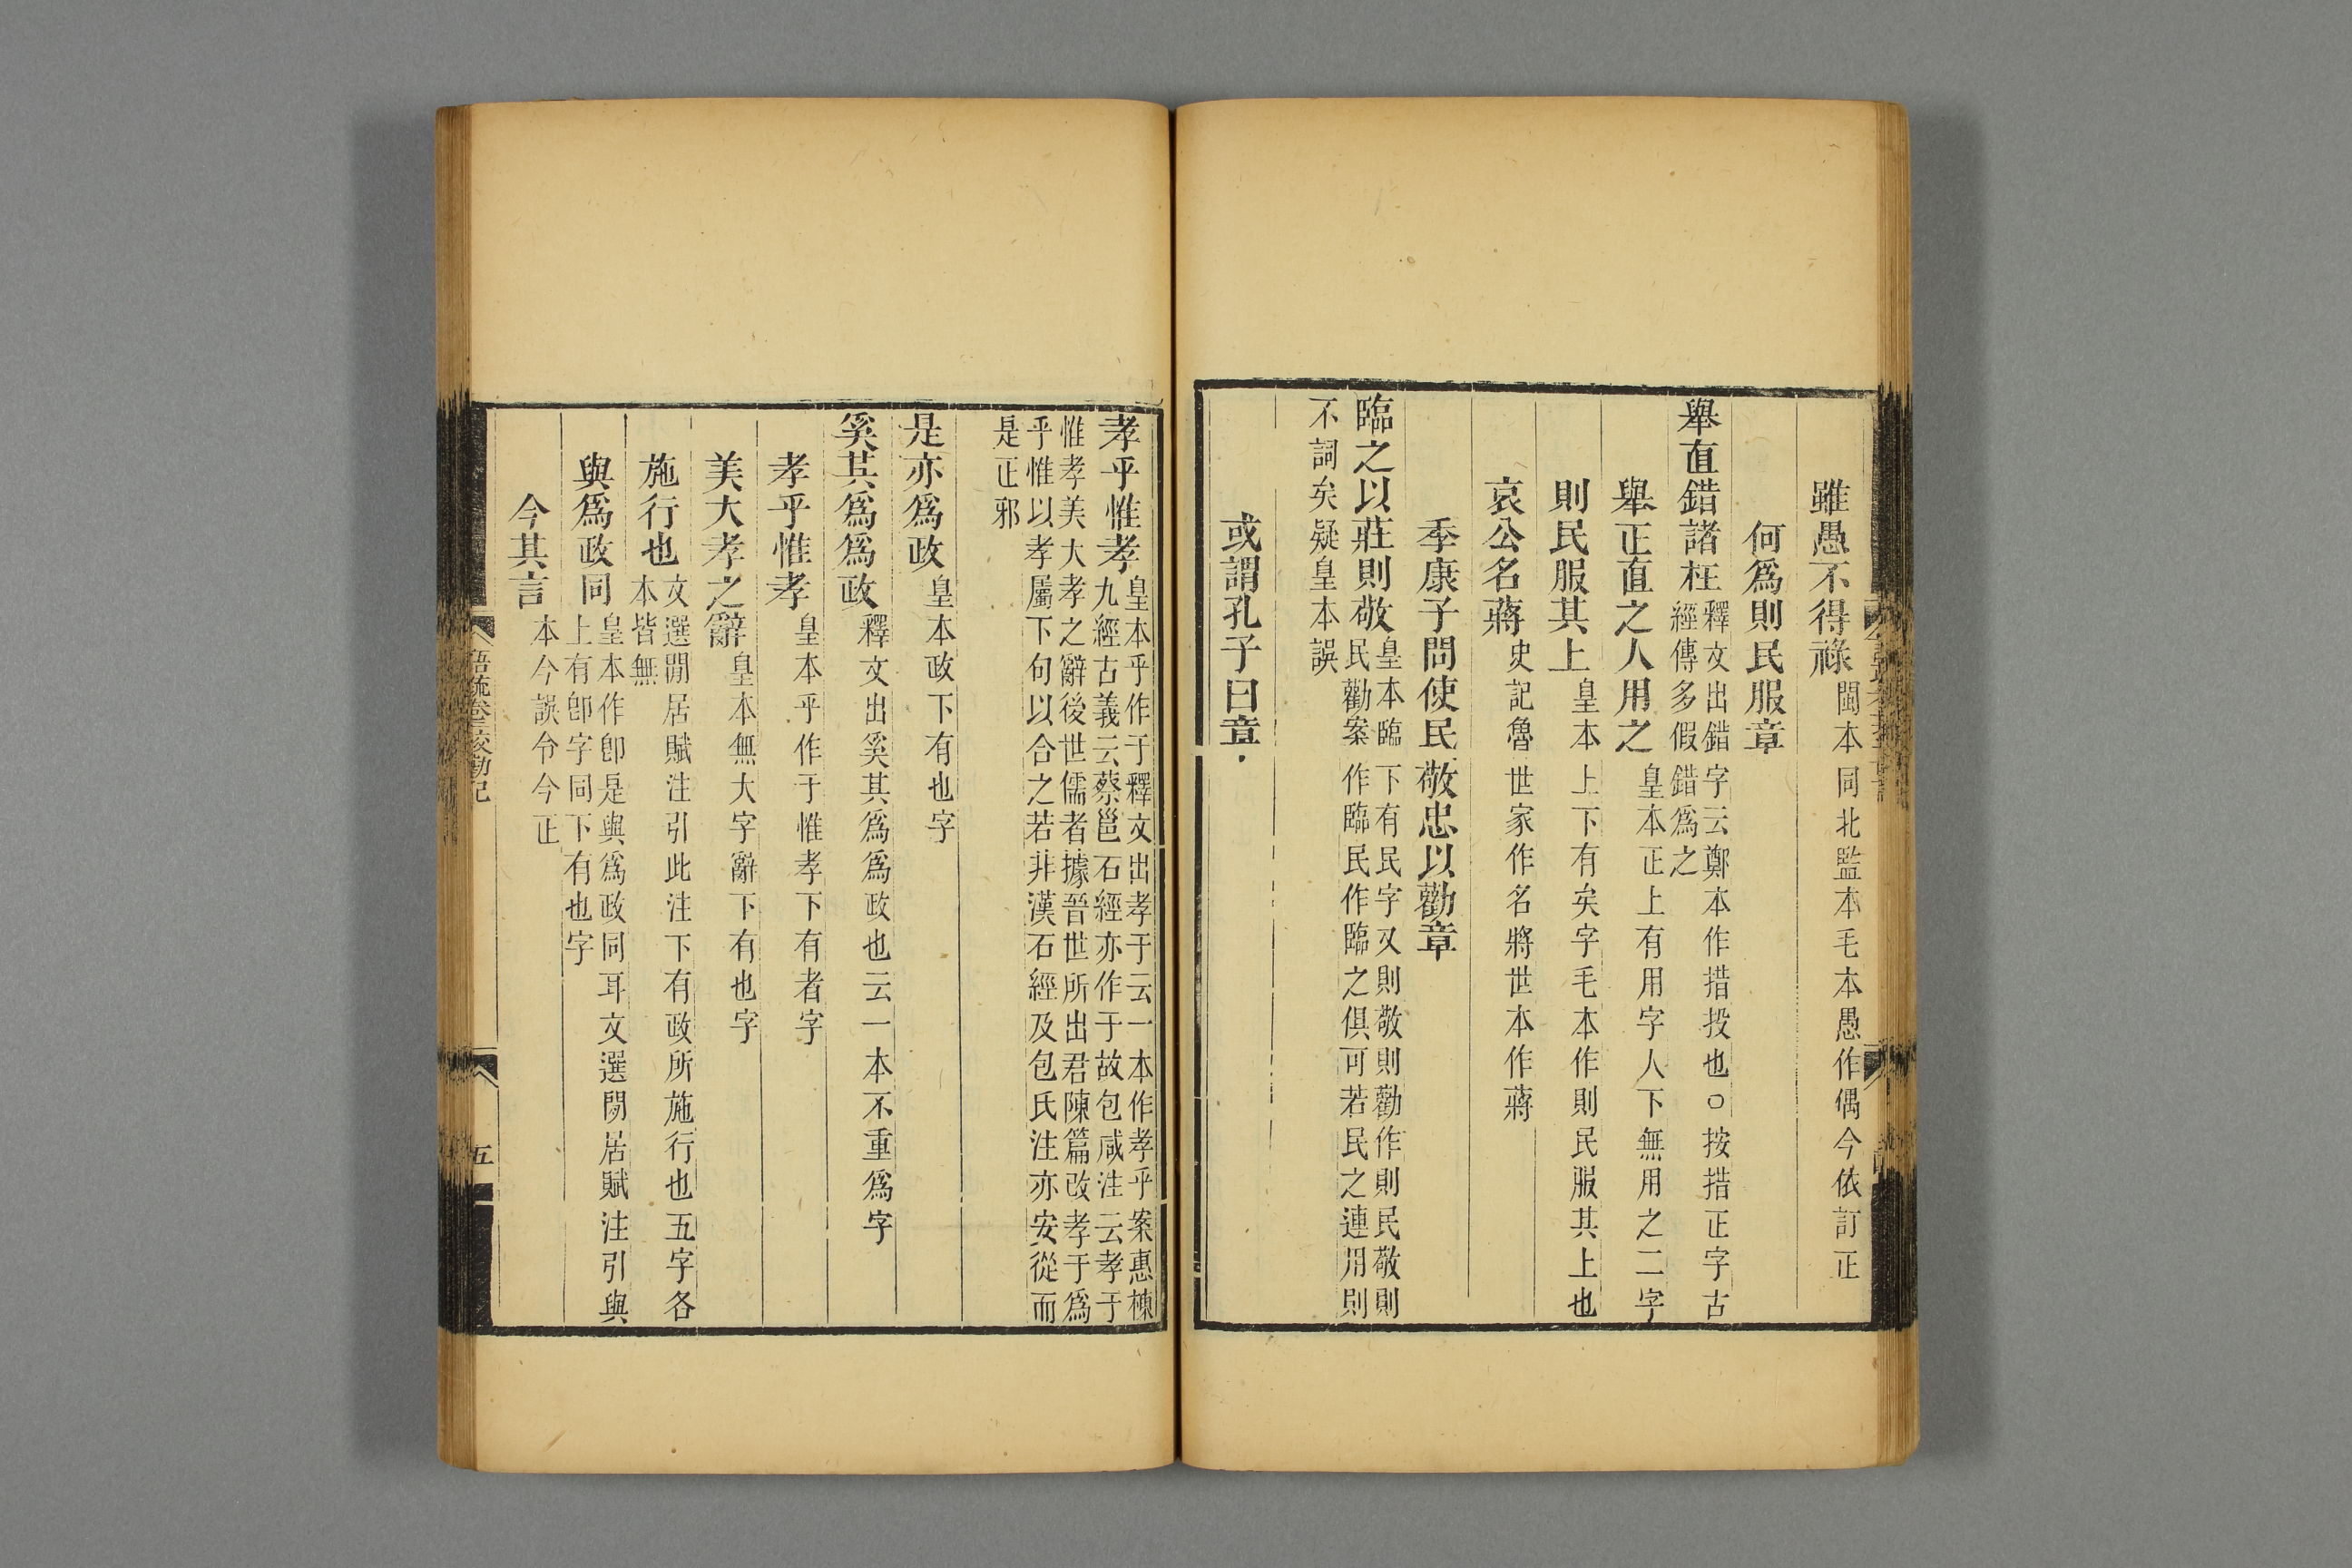 雖愚不得祿閩本同北監本毛本愚作偶今依訂正
何爲則民服章
舉直錯諸枉釋文出錯字云鄭本作措投也○按措正字古
經傳多假錯爲之
舉正直之人用之皇本正上有用字人下無用之二字
則民服其上皇本上下有矣字毛本作則民服其上也
哀公名蔣史記魯世家作名將世本作蔣
季康子問使民敬忠以勸章
臨之以莊則敬皇本臨下有民字又則敬則勸作則民敬則
民勸案作臨民作臨之俱可若民之連用則
不詞矣疑皇本誤
或謂孔子曰章
孝乎惟孝皇本乎作于釋文出孝于云一本作孝乎案惠棟
九經古義云蔡邕石經亦作于故包咸注云孝于
惟孝美大孝之辭後世儒者據晉世所出君陳篇改孝于爲
乎惟以孝屬下句以合之若非漢石經及包氏注亦安從而
是正邪
是亦爲政皇本政下有也字
奚其爲爲政釋文出奚其爲爲政也云一本不重爲字
孝乎惟孝皇本乎作于惟孝下有者字
美大孝之辭皇本無大字辭下有也字
施行也文選閒居賦注引此注下有政所施行也五字各
本皆無
與爲政同皇本作卽是與爲政同耳文選閒居賦注引與
上有卽字同下有也字
今其言本今誤令今正
語疏卷二校勘記
五